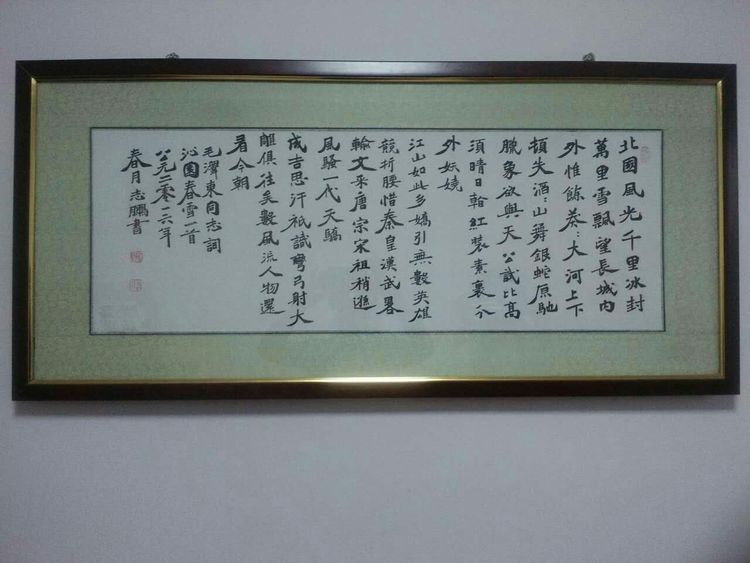 北國風光千里冰封
萬里雪飄望長城内
外惟餘莽〻大河上下
頓失滔〻山舞銀蛇原馳
臘象欲與天公試比高
須晴日看紅裝素裹分
外妖嬈
江山如此多嬌引無數英雄
競折腰惜秦皇漢武畧
輸文采唐宗宋祖稍遜
風騷一代天驕
成吉思汗祇識彎弓射大
雕俱往矣數風流人物還
看今朝
毛澤東同志詞
沁園春雪一首
公元二零一六年
春月志鵬書